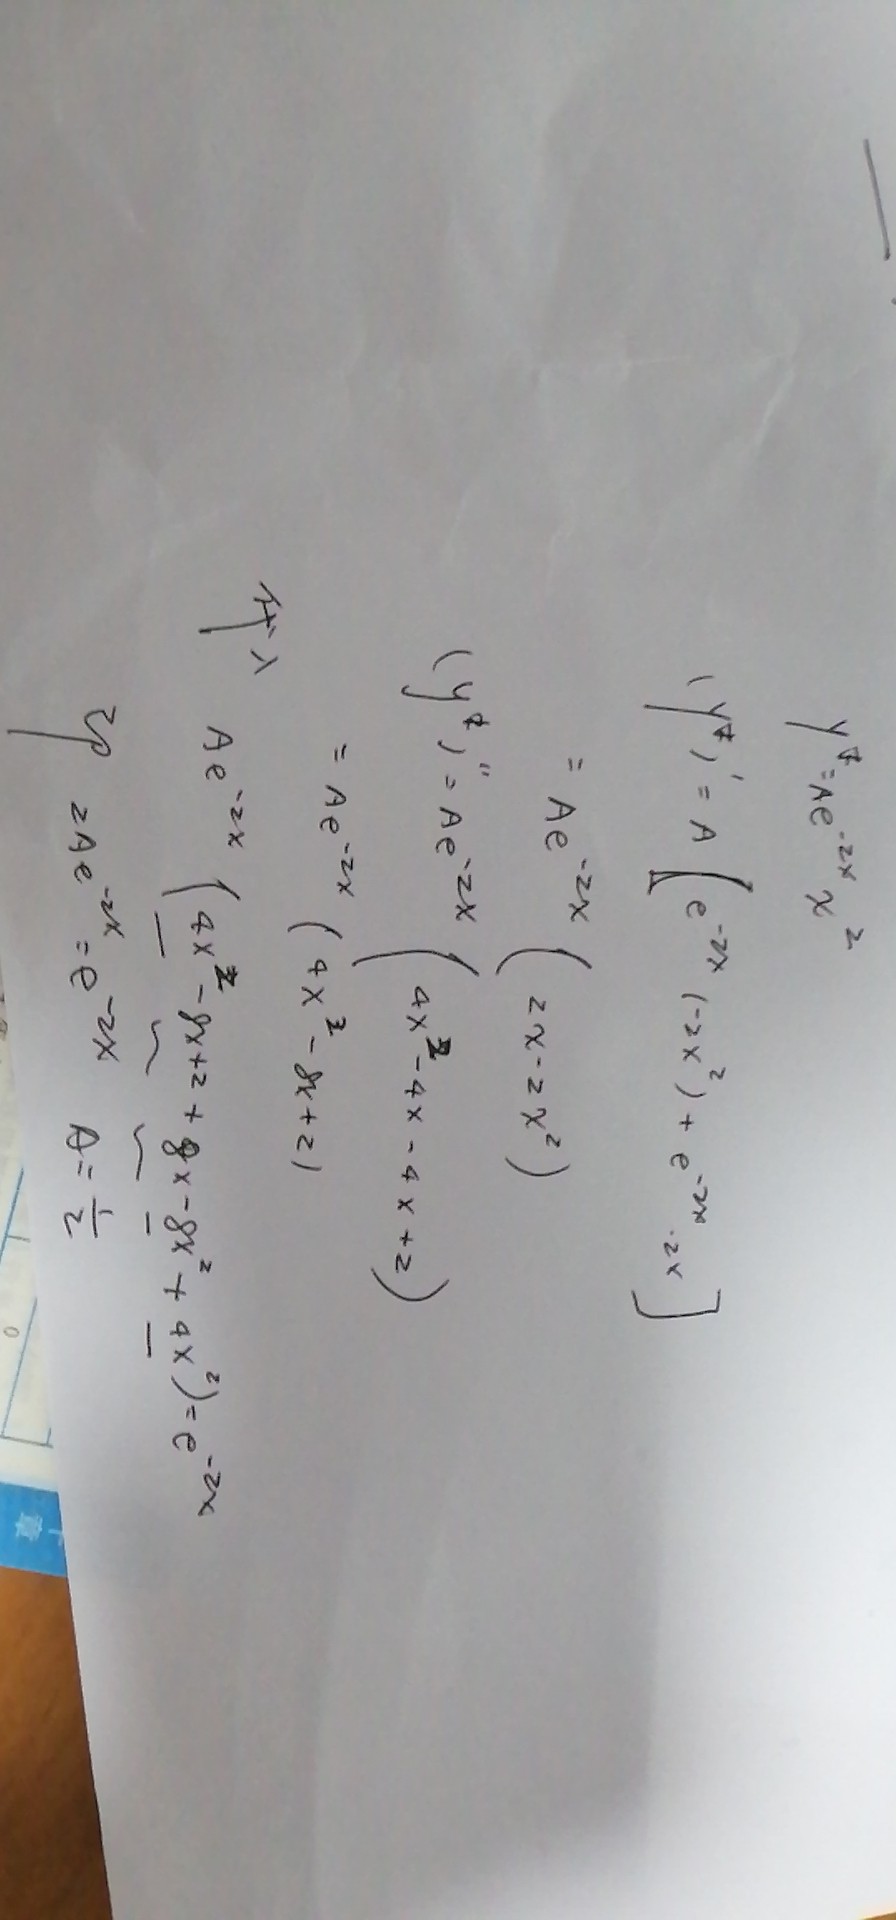 y* = Ae^{-2x} x^2
(y*)' = A[e^{-2x}(-2x^2) + e^{-2x}·2x]
= Ae^{-2x}(2x-2x^2)
(y*)'' = Ae^{-2x}(4x^2-4x-4x+2)
= Ae^{-2x}(4x^2-8x+2)
代入
Ae^{-2x}(4x^2-8x+2+8x-8x^2+4x^2)=e^{-2x}
即 2Ae^{-2x}=e^{-2x} A=\frac{1}{2}
0
章